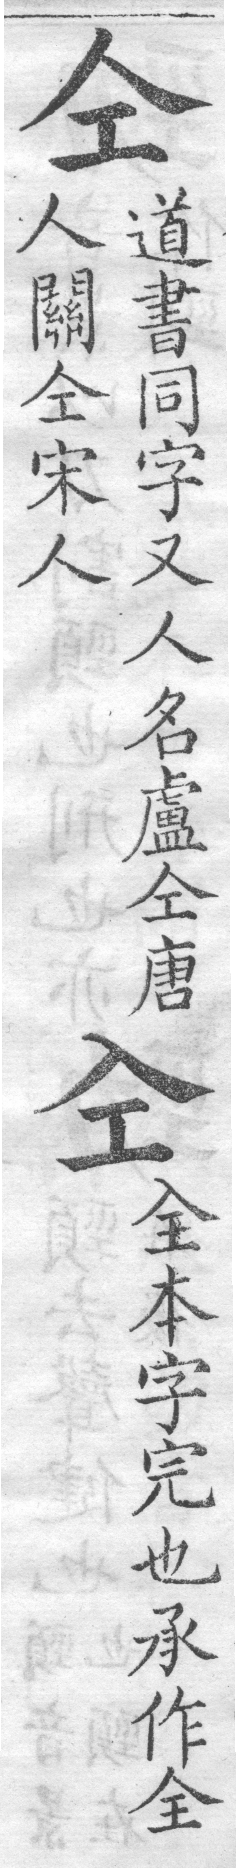 仝
道書同字又人名盧仝唐
人關仝宋人
㒰
全本字完也承作全